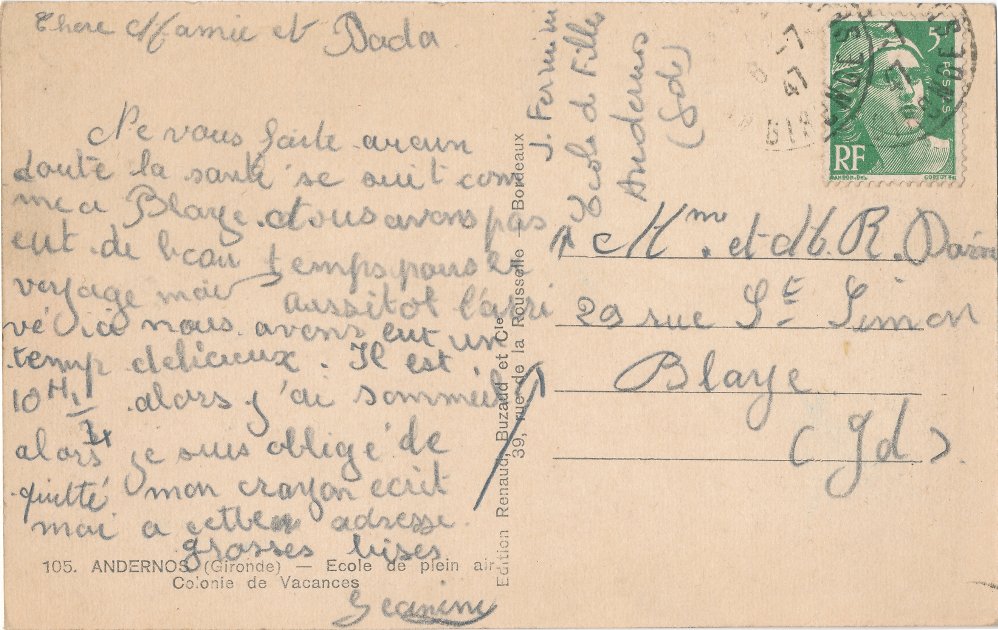 Chere Mamie et Dada
Ne vous faite aucun
doute la santé se suit com
me a Blaye. Nous avons pas
eut de beau temps pour le
voyage mai aussitot l'arri
vé ici nous avons eut un
temp delicieux. Il est
10H alors j'ai sommeil
alors je suis obligé de
quitté mon crayon ecrit
moi a cette adresse.
grosses bises
Jeanine
105. ANDERNOS (Gironde) — Ecole de plein air
Colonie de Vacances
Edition Renaud, Buzaud et Cie
39, rue de la Rousselle - Bordeaux
J. Fermin
Ecole de Fille
Andernos
(Gde)
-7
47
GIR
5F
POSTES
RF
GANDON.DEL.
CORTOT.SC.
Mme et M. R.
29 rue St Simon
Blaye
(Gd)